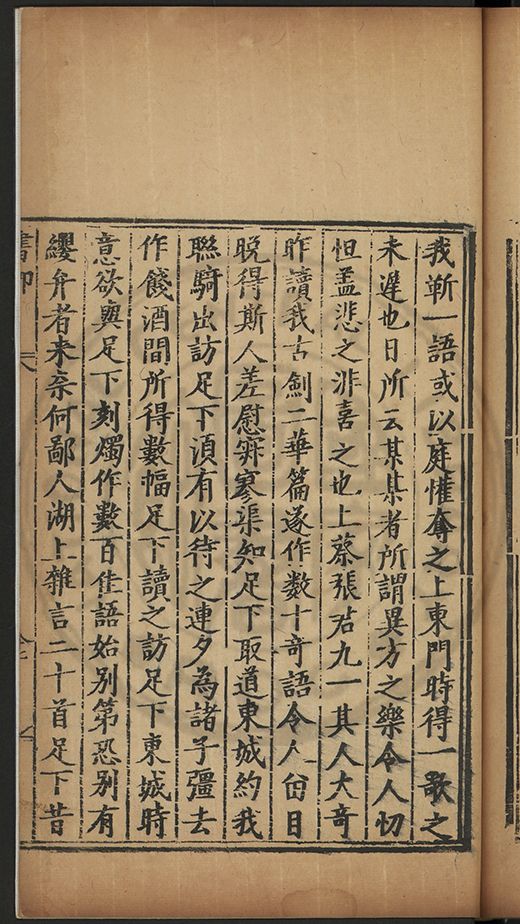 我靳一語或以庭惟奪之上東門時得一歌之
未遲也日所云某某者所謂異方之樂令人忉
怛孟悲之非喜之也上蔡張君九一其人大奇
昨讀我古劍二華篇遂作數十奇語令人自
晚得斯人差慰寂寥渠知足下取道東城約我
聮騎出訪足下湏有以待之連夕為諸子彊去
作餞酒間所得數幅足下讀之訪足下東城時
意欲與足下刻燭作數百佳語始別第恐別有
纓弁者来柰何鄙人湖上雜言二十首足下昔